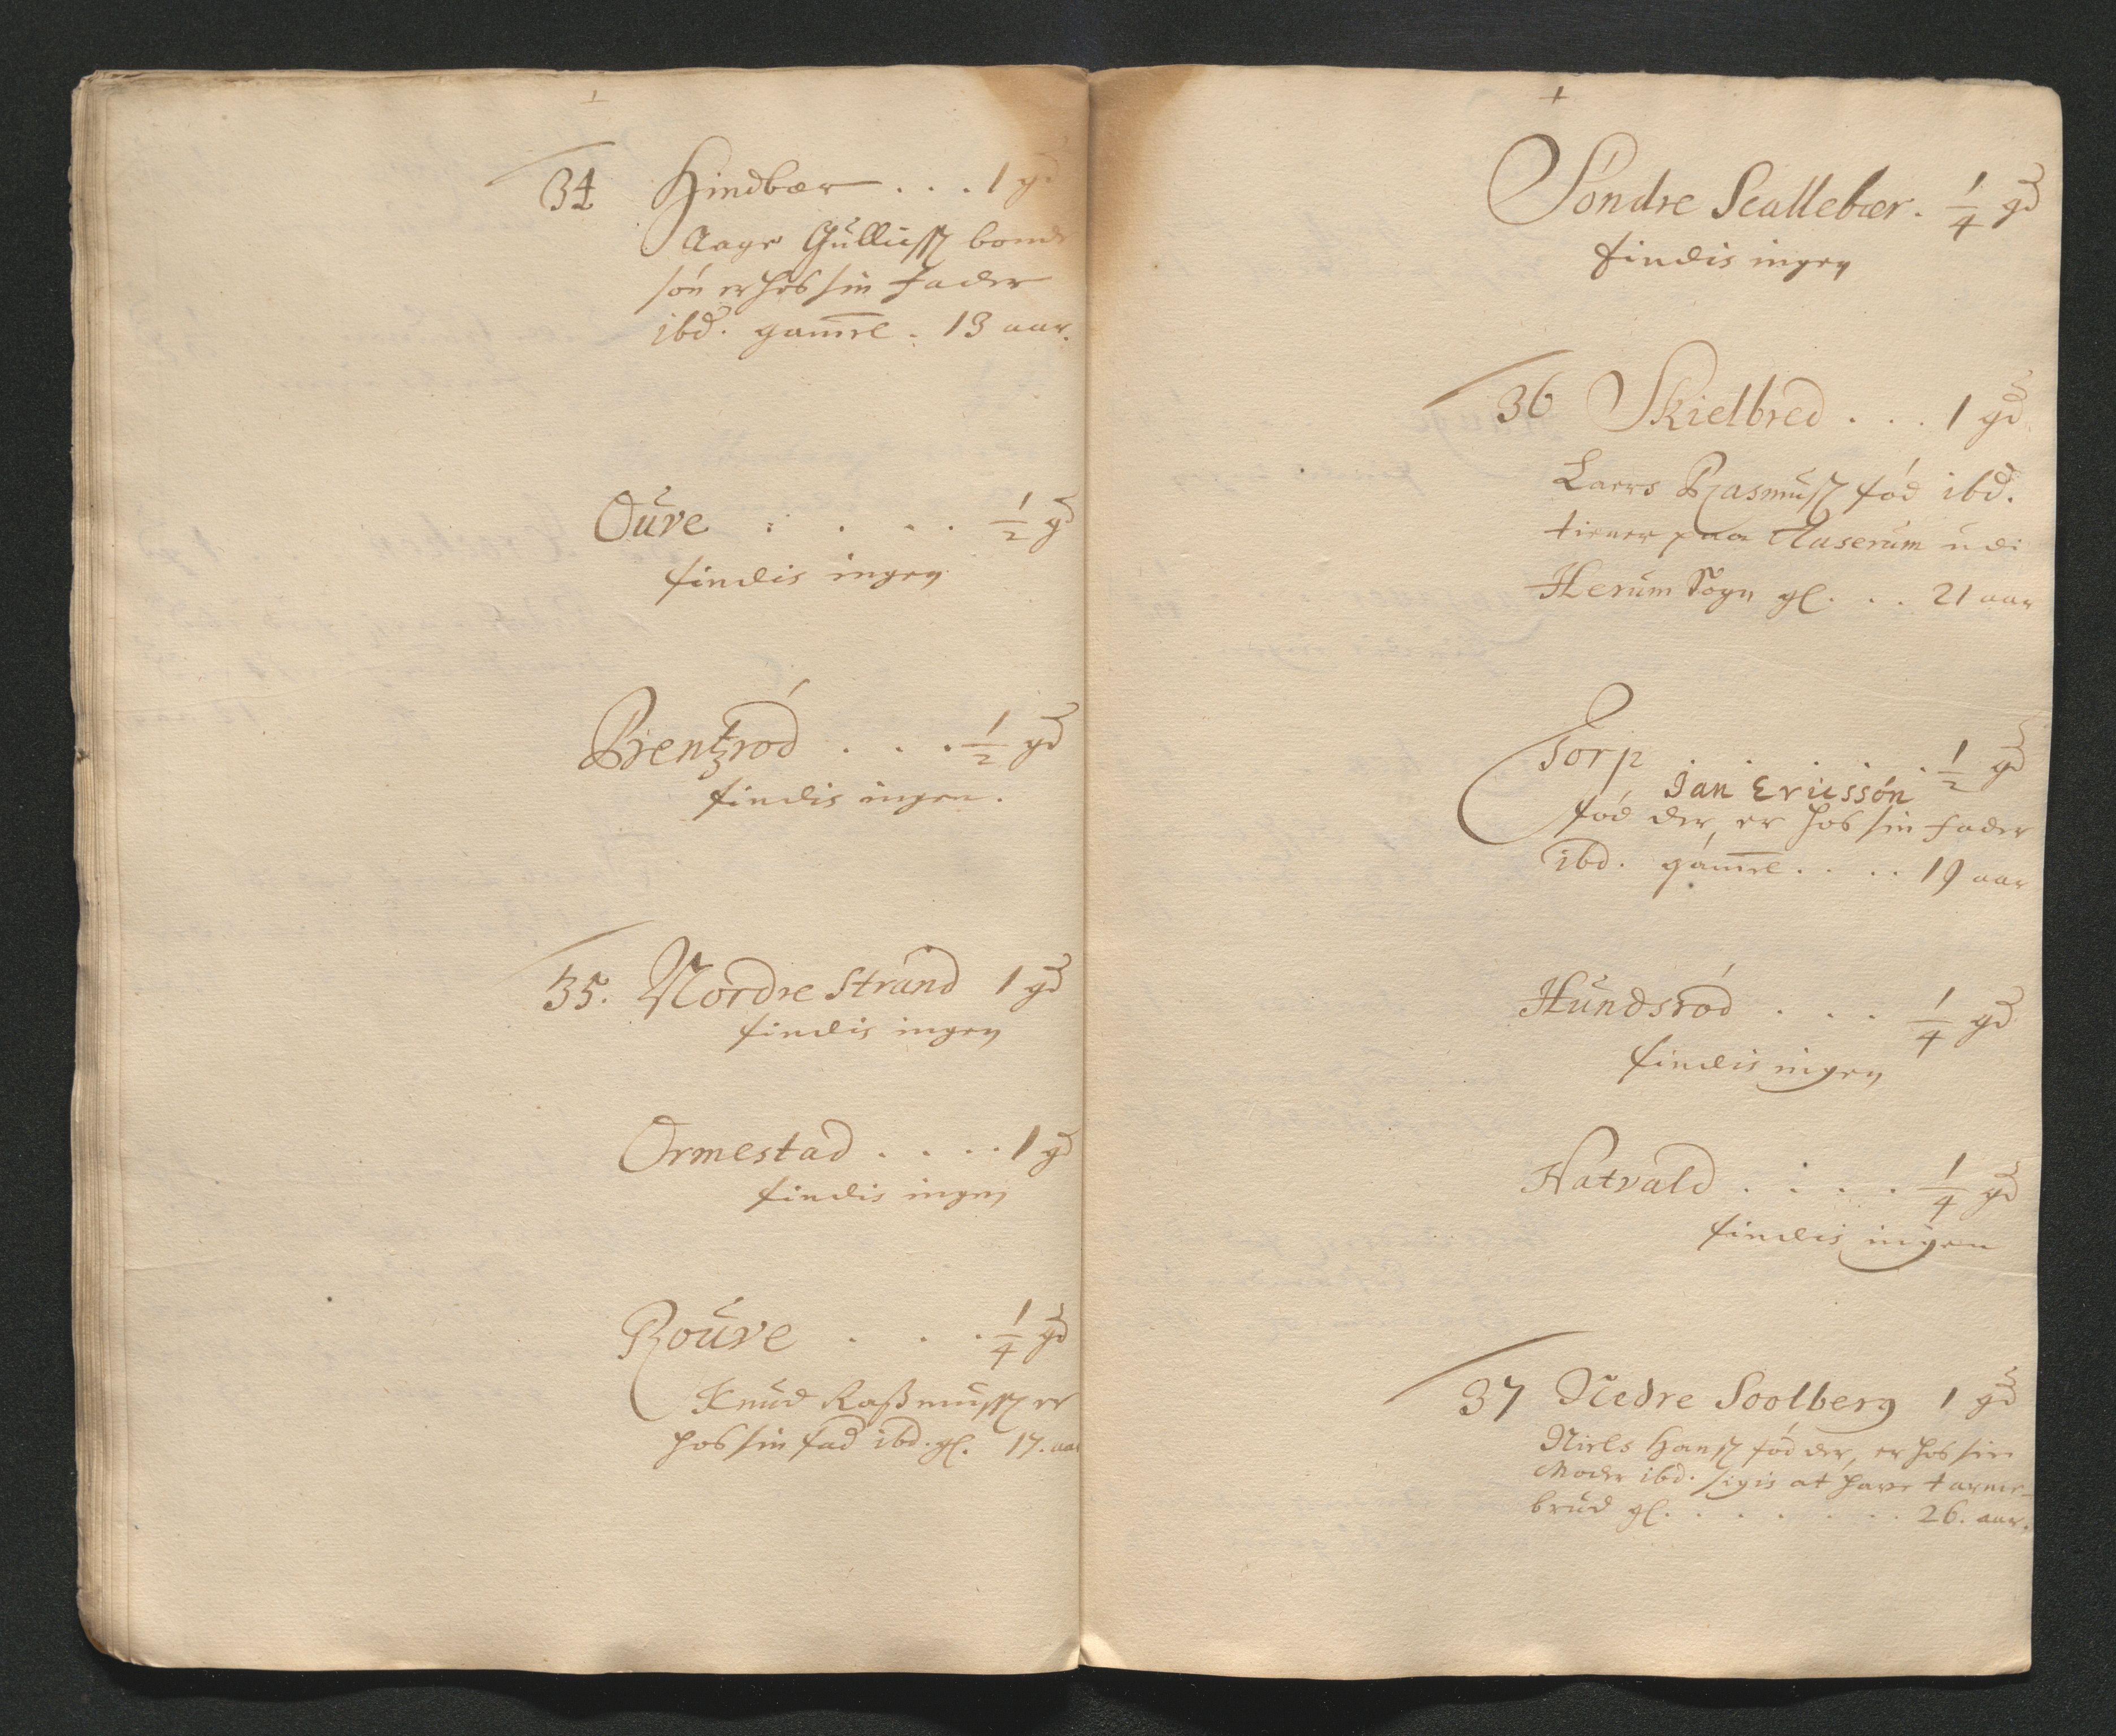 34 Hindbær . . . 1 gd
Aage Gulluss bonde
søn er hos sin Fader
ibd. gamel . 13 aar.
Oure . . . . ½ gd
findis ingen
Brentzrød . . . ½ gd
findis ingen.
35. Nordre Strand 1 gd
findis ingen
Ormestad . . . . 1 gd
findis ingen
Roure . . . ¼ gd
Knud Rasmuss er
hos sin fad ibd. gl. 17. aar
Søndre Scallebær . ¼ gd
findis ingen
36 Skielbred . . . 1 gd
Laers Rasmuss fød ibd.
tiener paa Aaserum udi
Herum Sogn gl. . . 21 aar
Torp . . . . . ½ gd
Jan Ericssøn
fød der, er hos sin Fader
ibd. gamel . . . . 19 aar
Hundsrød . . . ¼ gd
findis ingen
Hatvald . . . . ¼ gd
findis ingen
37 Nedre Soolberg 1 gd
Niels Hanss fød der, er hos sin
Moder ibd. sigis at have tarme-
brud gl. . . . . . . . 26. aar.